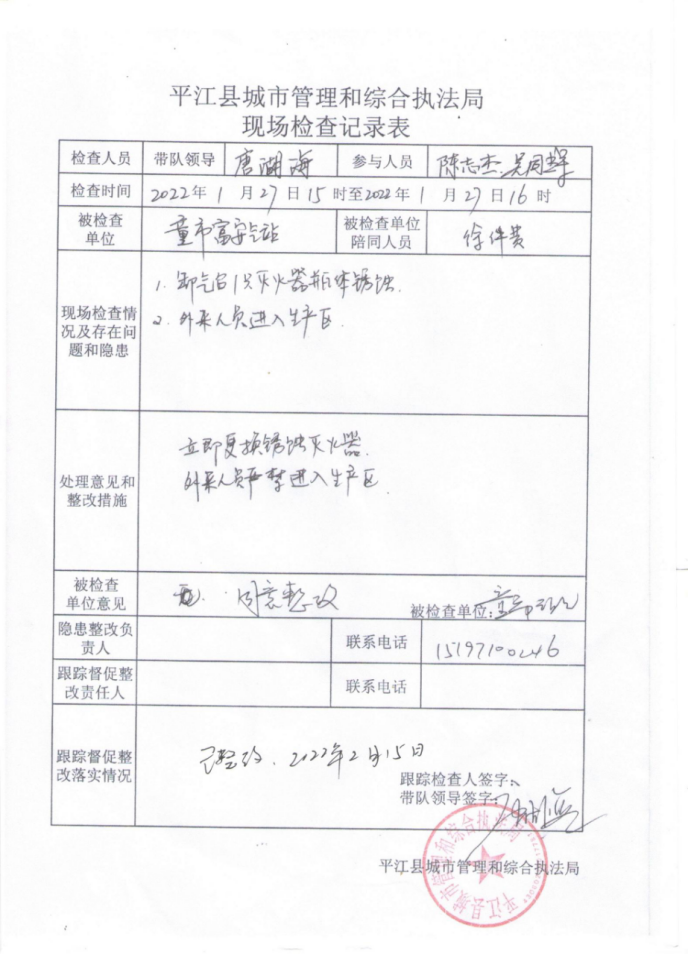 平江县城市管理和综合执法局
现场检查记录表
检查人员 带队领导 唐湖海 参与人员 陈志杰、吴周翠
检查时间 2022年1月27日15时至2022年1月27日16时
被检查单位 童市富安气站 被检查单位陪同人员 徐件贵
现场检查情况及存在问题和隐患
1. 卸气台1只灭火器瓶体锈蚀.
2. 外来人员进入生产区.
处理意见和整改措施
立即更换锈蚀灭火器.
外来人员严禁进入生产区
被检查单位意见 同意整改 被检查单位:
隐患整改负责人 联系电话
跟踪督促整改责任人 联系电话
跟踪督促整改落实情况
已整改. 2022年2月15日
跟踪检查人签字:
带队领导签字:
平江县城市管理和综合执法局
平江县城市管理和综合执法局